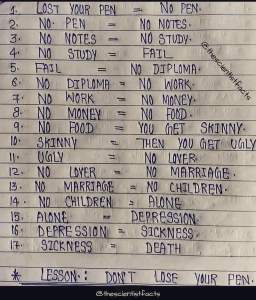 1. LOST YOUR PEN = NO PEN.
2. NO PEN = NO NOTES.
3. NO NOTES = NO STUDY.
4. NO STUDY = FAIL
5. FAIL = NO DIPLOMA.
6. NO DIPLOMA = NO WORK.
7. NO WORK = NO MONEY.
8. NO MONEY = NO FOOD.
9. NO FOOD = YOU GET SKINNY.
10. SKINNY = THEN YOU GET UGLY
11. UGLY = NO LOVER
12. NO LOVER = NO MARRIAGE.
13. NO MARRIAGE = NO CHILDREN.
14. NO CHILDREN = ALONE
15. ALONE = DEPRESSION.
16. DEPRESSION = SICKNESS.
17. SICKNESS = DEATH
* LESSON:: DON'T LOSE YOUR PEN.
@thescientistfacts
@thescientistfacts